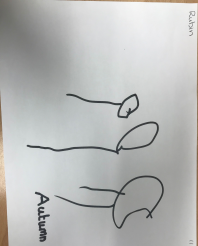 Ruban
Autumn